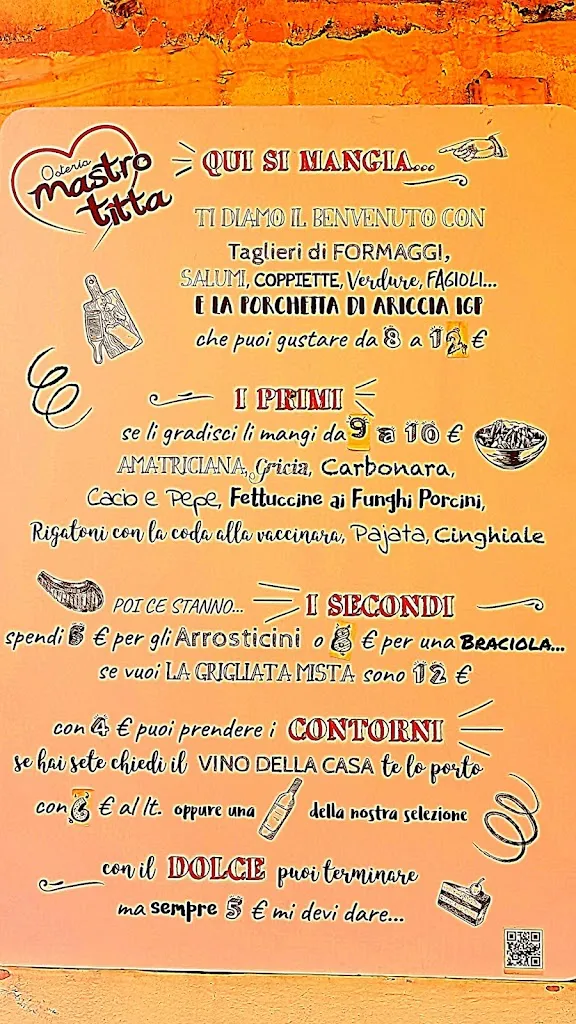 Osteria
mastro
titta
QUI SI MANGIA...
TI DIAMO IL BENVENUTO CON
Taglieri di FORMAGGI,
SALUMI, COPPIETTE, Verdure, FAGIOLI...
E LA PORCHETTA DI ARICCIA IGP
che puoi gustare da 8 a 12 €
I PRIMI
se li gradisci li mangi da 9 a 10 €
AMATRICIANA, Gricia, Carbonara,
Cacio e Pepe, Fettuccine ai Funghi Porcini,
Rigatoni con la coda alla vaccinara, Pajata, Cinghiale
POI CE STANNO... I SECONDI
spendi € per gli Arrosticini o 8 € per una BRACIOLA...
se vuoi LA GRIGLIATA MISTA sono 12 €
con 4 € puoi prendere i CONTORNI
se hai sete chiedi il VINO DELLA CASA te lo porto
con 6 € al lt. oppure una della nostra selezione
con il DOLCE puoi terminare
ma sempre 5 € mi devi dare...